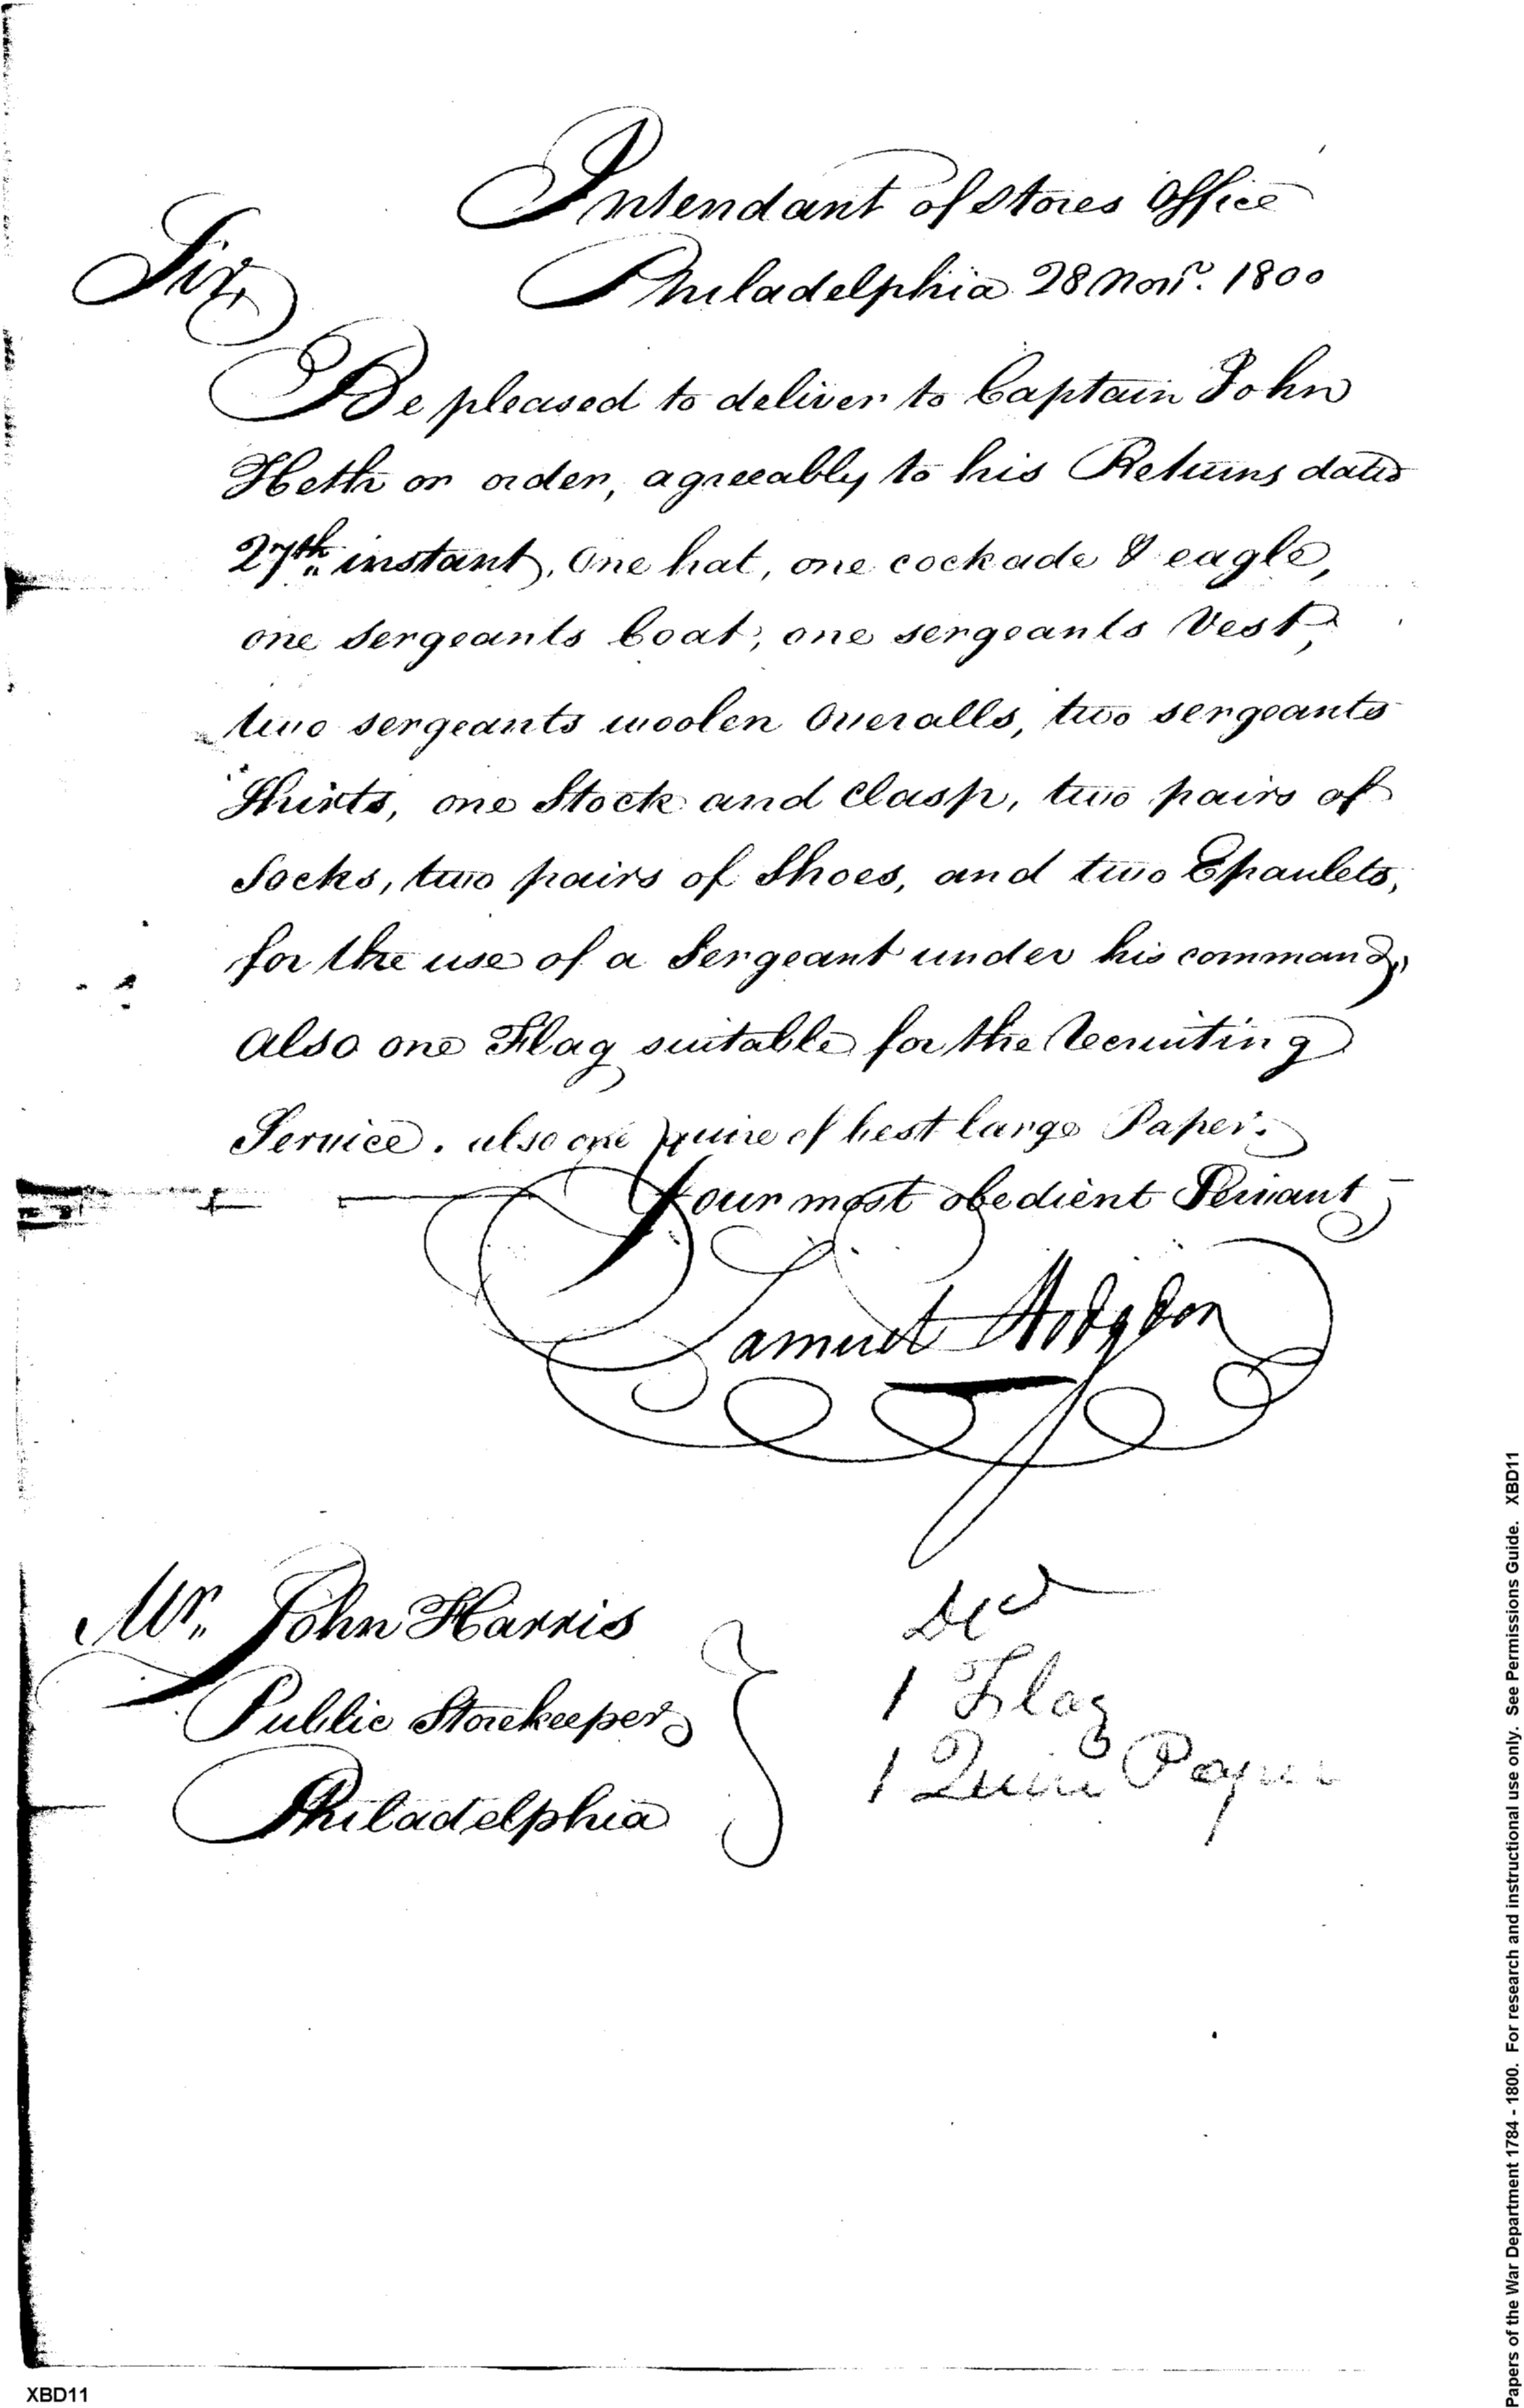 Intendant of Stores Office
Sir,
Philadelphia 28 Novr. 1800
Be pleased to deliver to Captain John
Heth or order, agreeably to his Returns dated
27th instant, One hat, one cockade & eagle,
one Sergeants Coat, one sergeants Vest,
two sergeants woolen Overalls, two sergeants
Shirts, one Stock and Clasp, two pairs of
Socks, two pairs of Shoes, and two Epaulets,
for the use of a Sergeant under his command,
also one Flag suitable for the Recruiting
Service. also one quire of best large Paper.
Your most obedient Servant
Samuel Hodgdon
Mr. John Harris
Public Storekeeper
Philadelphia
Dd
1 Flag
1 Quire Paper
Papers of the War Department 1784 - 1800. For research and instructional use only. See Permissions Guide. XBD11
XBD11